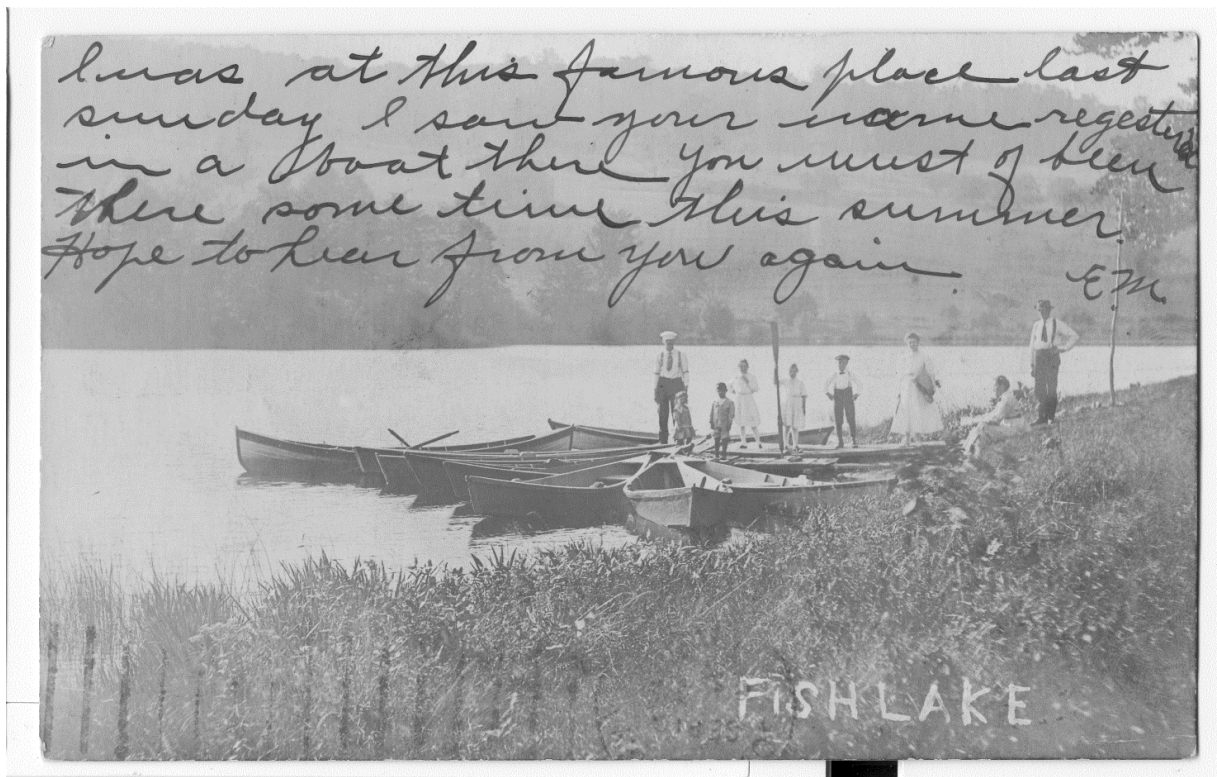 I was at this famous place last
sunday I saw your name regestered
in a boat there you must of been
there some time this summer.
Hope to hear from you again. EM.
FISH LAKE